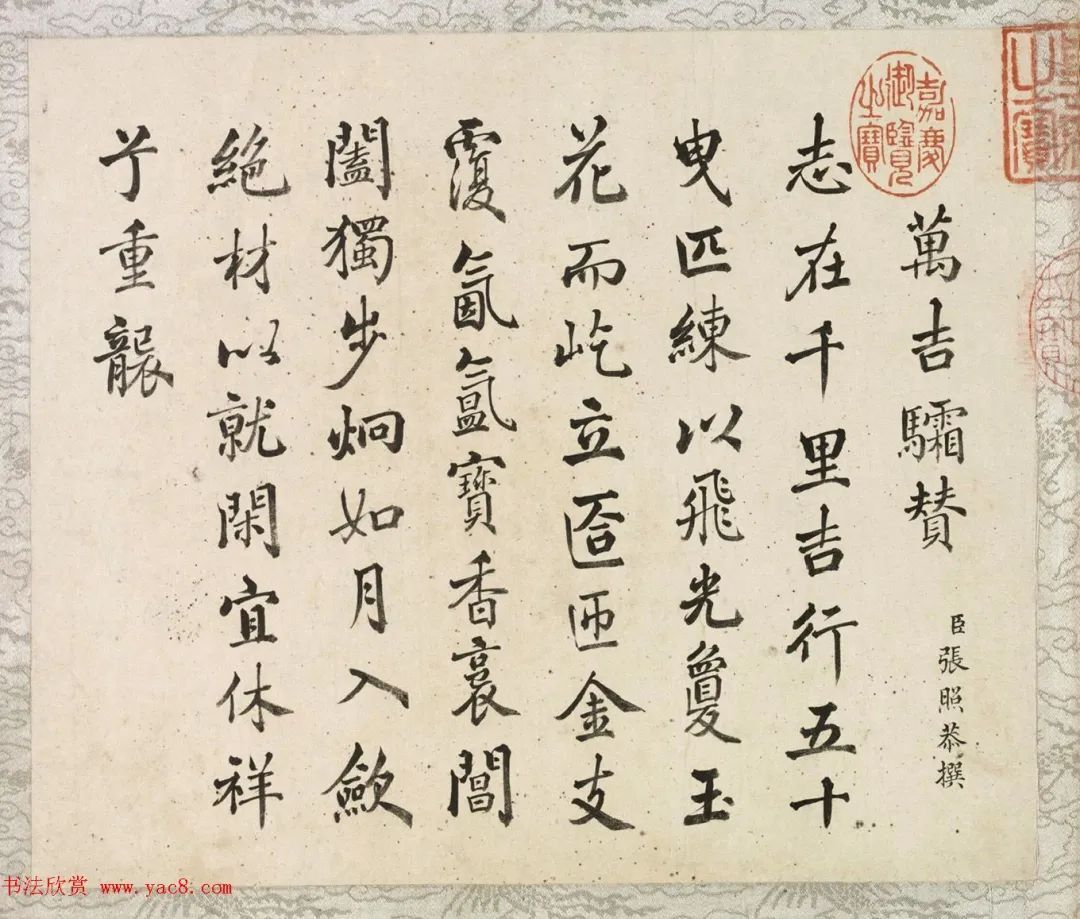 萬吉驦賛
臣張照恭撰
志在千里吉行五十
曳匹練以飛光夐玉
花而屹立匼匝金支
覆氤氳寶香裊閶
闔獨步炯如月入歛
絶材以就閑宜休祥
兮重襲
嘉慶御覽之寶
书法欣赏 www.yac8.com